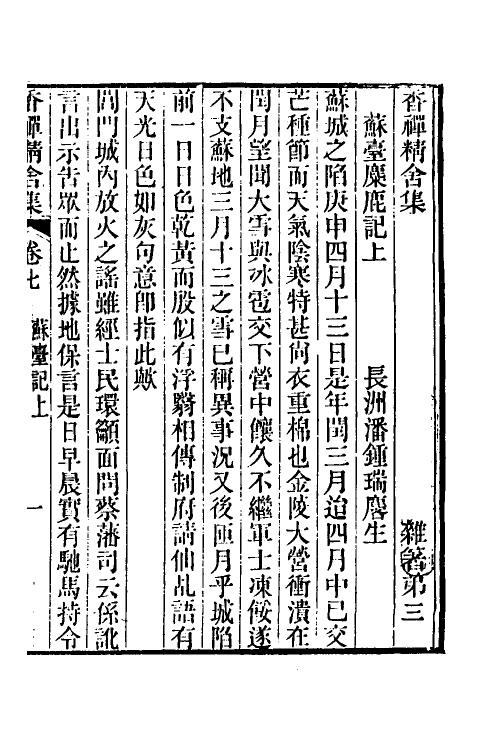 香禪精舍集 雜著第三
蘇臺麋鹿記上 長洲潘鍾瑞麐生
蘇城之陷庚申四月十三日是年閏三月迨四月中已交
芒種節而天氣陰寒特甚尙衣重棉也金陵大營衝潰在
閏月望聞大雪與冰雹交下營中饟久不繼軍士凍餒遂
不支蘇地三月十三之雪已稱異事況又後匝月乎城陷
前一日日色乾黃而股似有浮翳相傳制府請仙乩語有
天光日色如灰句意卽指此歟
閶門城內放火之謠雖經士民環籲面問蔡藩司云係訛
言出示告眾而止然據地保言是日早晨實有馳馬持令
香禪精舍集 卷七 蘇臺記上 一